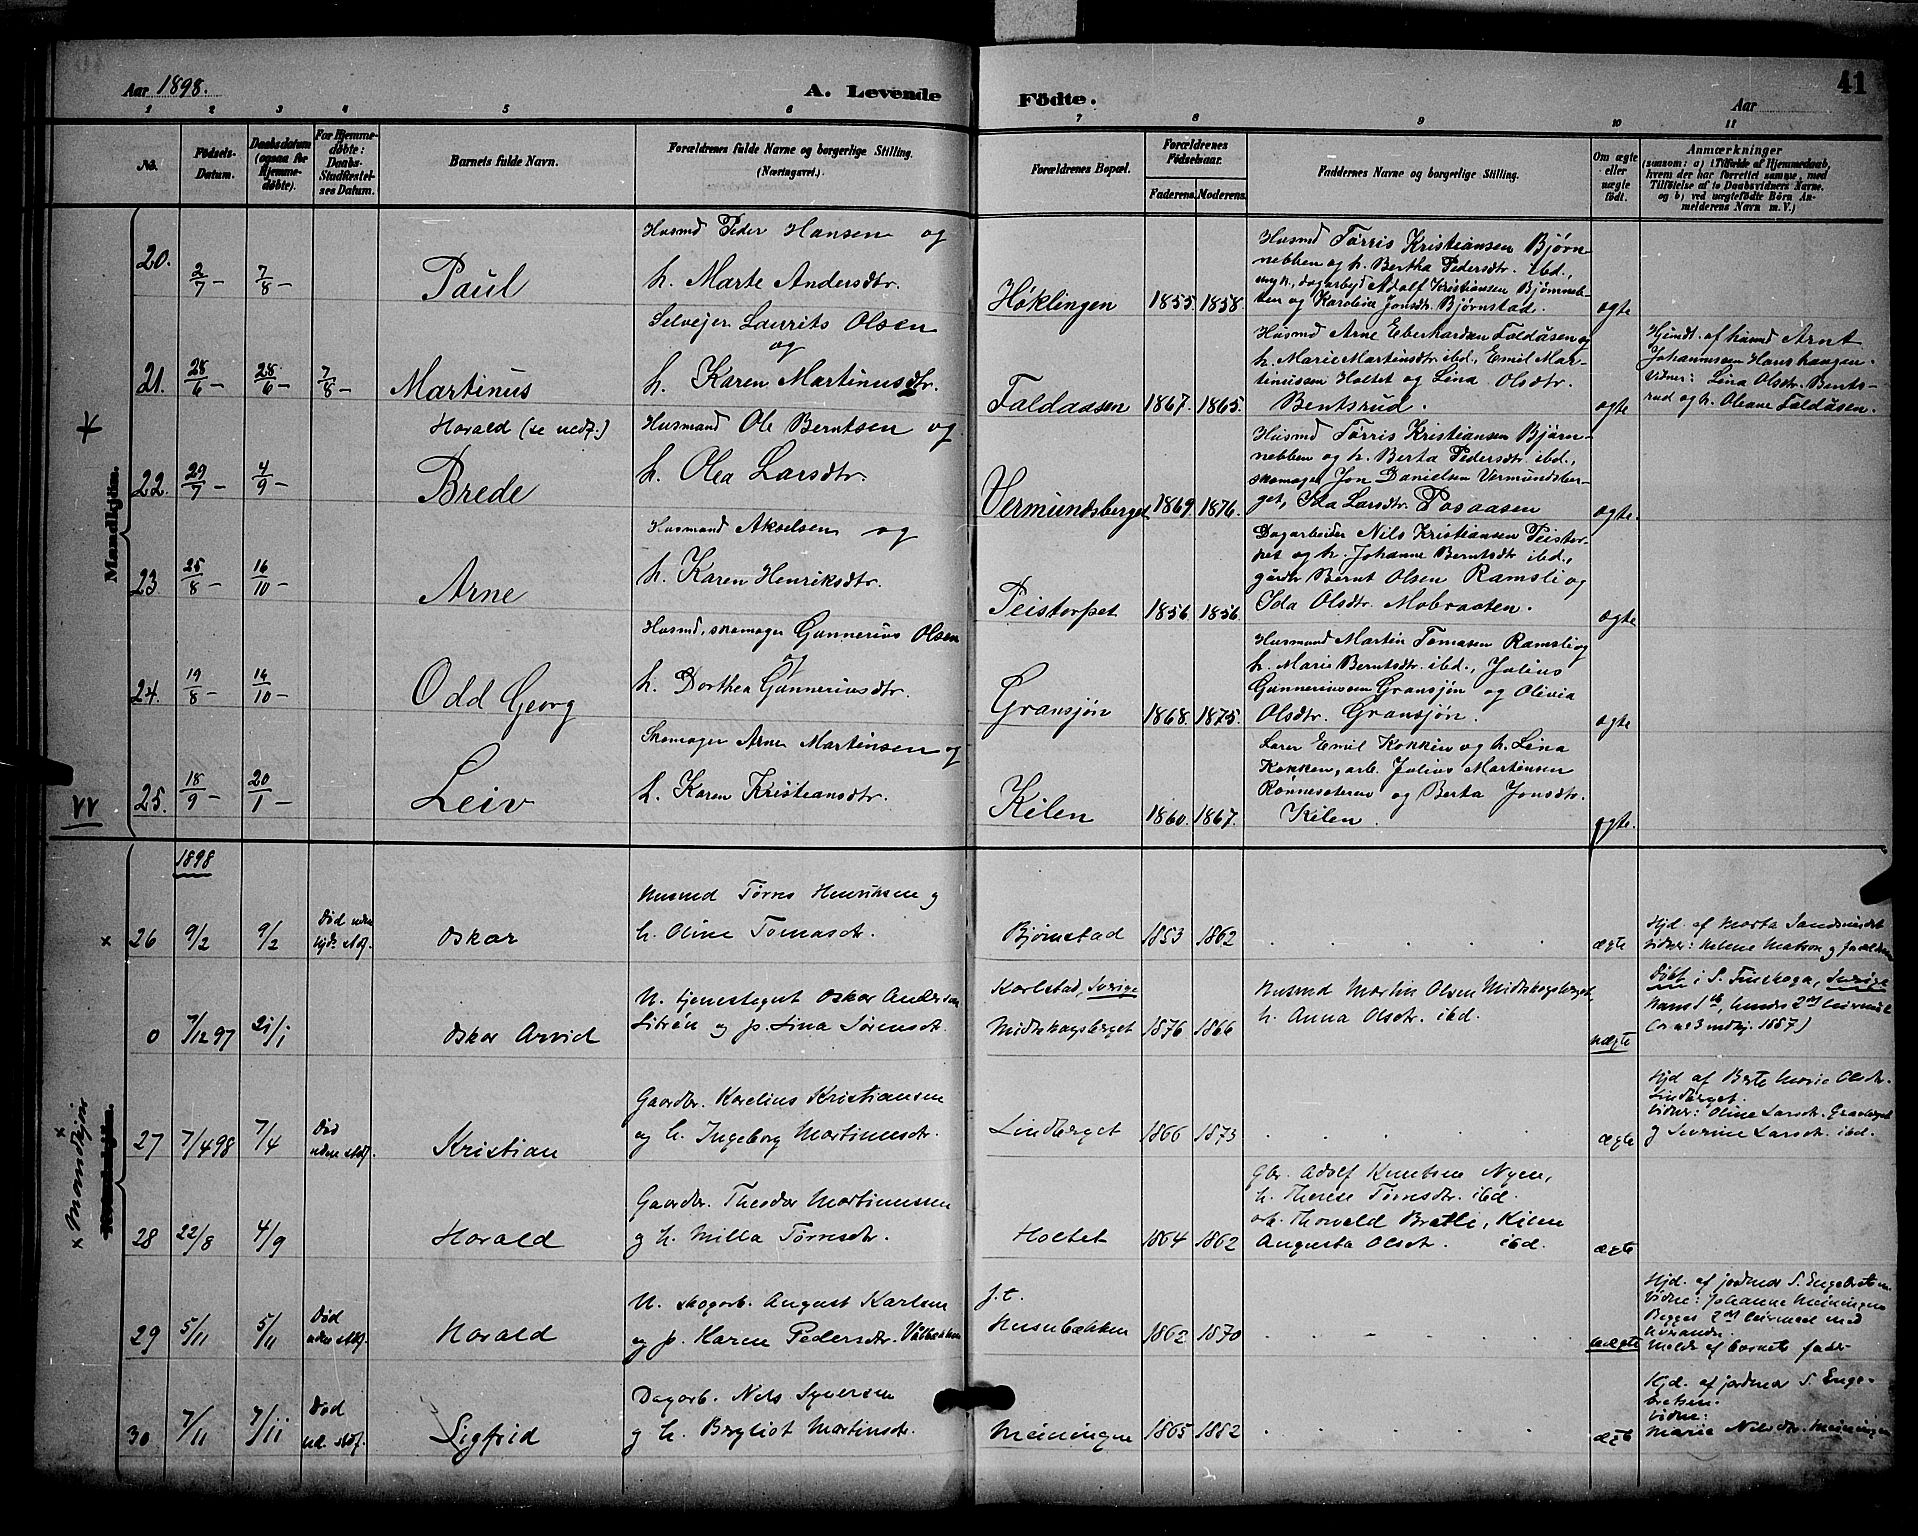 Aar 1898.
A. Levende
Födte.
Aar
41
1 2 3 4 5 6 7 8 9 10 11
No.
Födsels-
Datum.
Daabsdatum
(ogsaa for
Hjemme-
döbte).
For Hjemme-
döbte:
Daabs-
Stadfæstel-
ses Datum.
Barnets fulde Navn.
Forældrenes fulde Navne og borgerlige Stilling.
(Næringsvei.)
Forældrenes Bopæl.
Forældrenes
Födselsaar.
Faderens. Moderens.
Faddernes Navne og borgerlige Stilling.
Om ægte
eller
uægte
födt.
Anmærkninger
(saasom: a) i Tilfælde af Hjemmedaab,
hvem der har forrettet samme, med
Tilföielse af to Daabsvidners Navne,
og b) ved uægtefödte Börn An-
melderens Navn m. V.)
Mandkjön.
20. 2/7 – 7/8 –
Paul
Husmd Peder Hansen og
h. Marte Andersdtr.
Høklingen 1855. 1858.
Husmd Tørris Kristiansen Bjørn-
nebben og h. Bertha Pedersdtr. ibd.,
ungk., dagarbd Adolf Kristiansen Bjørnneb-
ben og Karoline Jonsdtr. Bjørnstad.
ægte
21. 28/6 – 28/6 – 7/8 –
Martinus
Selvejer Laurits Olsen
og
h. Karen Martinusdtr.
Faldaasen 1867. 1865.
Husmd Arne Eberhardsen Faldåsen og
h. Marie Martinsdtr. ibd., Emil Mar-
tinussen Holtet og Lina Olsdtr.
Bentsrud.
ægte
Hjemdt. af husmd Arnt
Johannesen Hanshaugen.
Vidner: Lina Olsdtr. Bents-
rud og h. Oleane Faldåsen.
Harald (se nedf.)
22. 29/7 – 4/9 –
Brede
Husmand Ole Berntsen og
h. Olea Larsdtr.
Vermundsberget 1869. 1876.
Husmd Tørris Kristiansen Bjørn-
nebben og h. Berta Pedersdtr. ibd.,
skomager Jon Danielsen Vermundsber-
get, Ida Larsdtr. Posaasen
ægte.
23. 25/8 – 16/10 –
Arne
Husmand Akselsen og
h. Karen Henriksdtr.
Peistorpet 1856. 1856.
Dagarbeider Nils Kristiansen Peistor-
pet og h. Johanne Berntsdtr ibd.,
gårdbr Bernt Olsen Ramsli og
Ida Olsdtr. Mobraaten.
ægte
24. 19/8 – 14/10 –
Odd Georg
Husmd, skomager Gunnerius Olsen
og
h. Dorthea Gunneriusdtr.
Gransjøn 1868. 1875.
Husmand Martin Tomasen Ramsli og
h. Marie Berntsdtr. ibd., Julius
Gunneriussen Gransjøn og Olivia
Olsdtr. Gransjøn.
ægte
25. 18/9 – 20/1 –
Leiv
Skomager Arne Martinsen og
h. Karen Kristiansdtr.
Kilen 1860. 1867.
Lærer Emil Kokkin og h. Lina
Kokken, arb. Julius Martinsen
Rønnesæteren og Berta Jonsdtr.
Kilen.
ægte.
1898
x Mandkjøn
26 9/2 9/2
Død uden
Oskar
Husmd Tørres Henriksen og
h. Oline Tomasdtr.
Bjørnstad 1853 1862
ægte
Hjd. af Marta
0 7/12 97 21/1
Oskar Arvid
U. tjenestegut Oskar Andersen
og p. Lina Sørensdtr.
Karlstad, Sverige
Midtskogsberget 1876 1866
Husmd Martin Olsen Midtskogsberget
h. Anna Olsdtr. ibd.
uægte
Døbt i S. Finskoga, Sverige
27 7/4 98 7/4
Død
uden stadf.
Kristian
Gaardbr. Karelius Kristiansen
og h. Ingeborg Martinusdtr.
Lindberget 1866 1873
ægte
Hjd af Berte Marie Olsdtr.
Lindberget.
Vidner: Oline Larsdtr. Graaberget
og Severine Larsdtr. ibd.
28 22/8 4/9
Harald
Gaardbr. Theodor Martinussen
og h. Milla Tørresdtr.
Holtet 1864 1862
Gbr. Adolf Knutsen Nyen,
h. Therese Tørresdtr. ibd.
arb. Thorvald Bratli, Kilen
Augusta Olsdtr. ibd.
ægte
29 5/11 5/11
Død
uden stadf.
Harald
U. skogarb. August Karlsen
og p. Karen Pedersdtr.
f.t.
1862 1870
uægte
Hjd. af jordmor S. Engebretsen
Vidne: Johanne Meiningen
Begges 2det leiermaal med
hverandre.
Meldt af barnets fader
30 7/11 7/11
Død
ud. stadf.
Sigfrid
Dagarb. Nils Syversen
og h. Bryliot Martinsdtr.
Meiningen 1865 1862
ægte
Hjd. af jordmor S. Enge-
bretsen.
Vidne:
Marie Nilsdtr. Meiningen